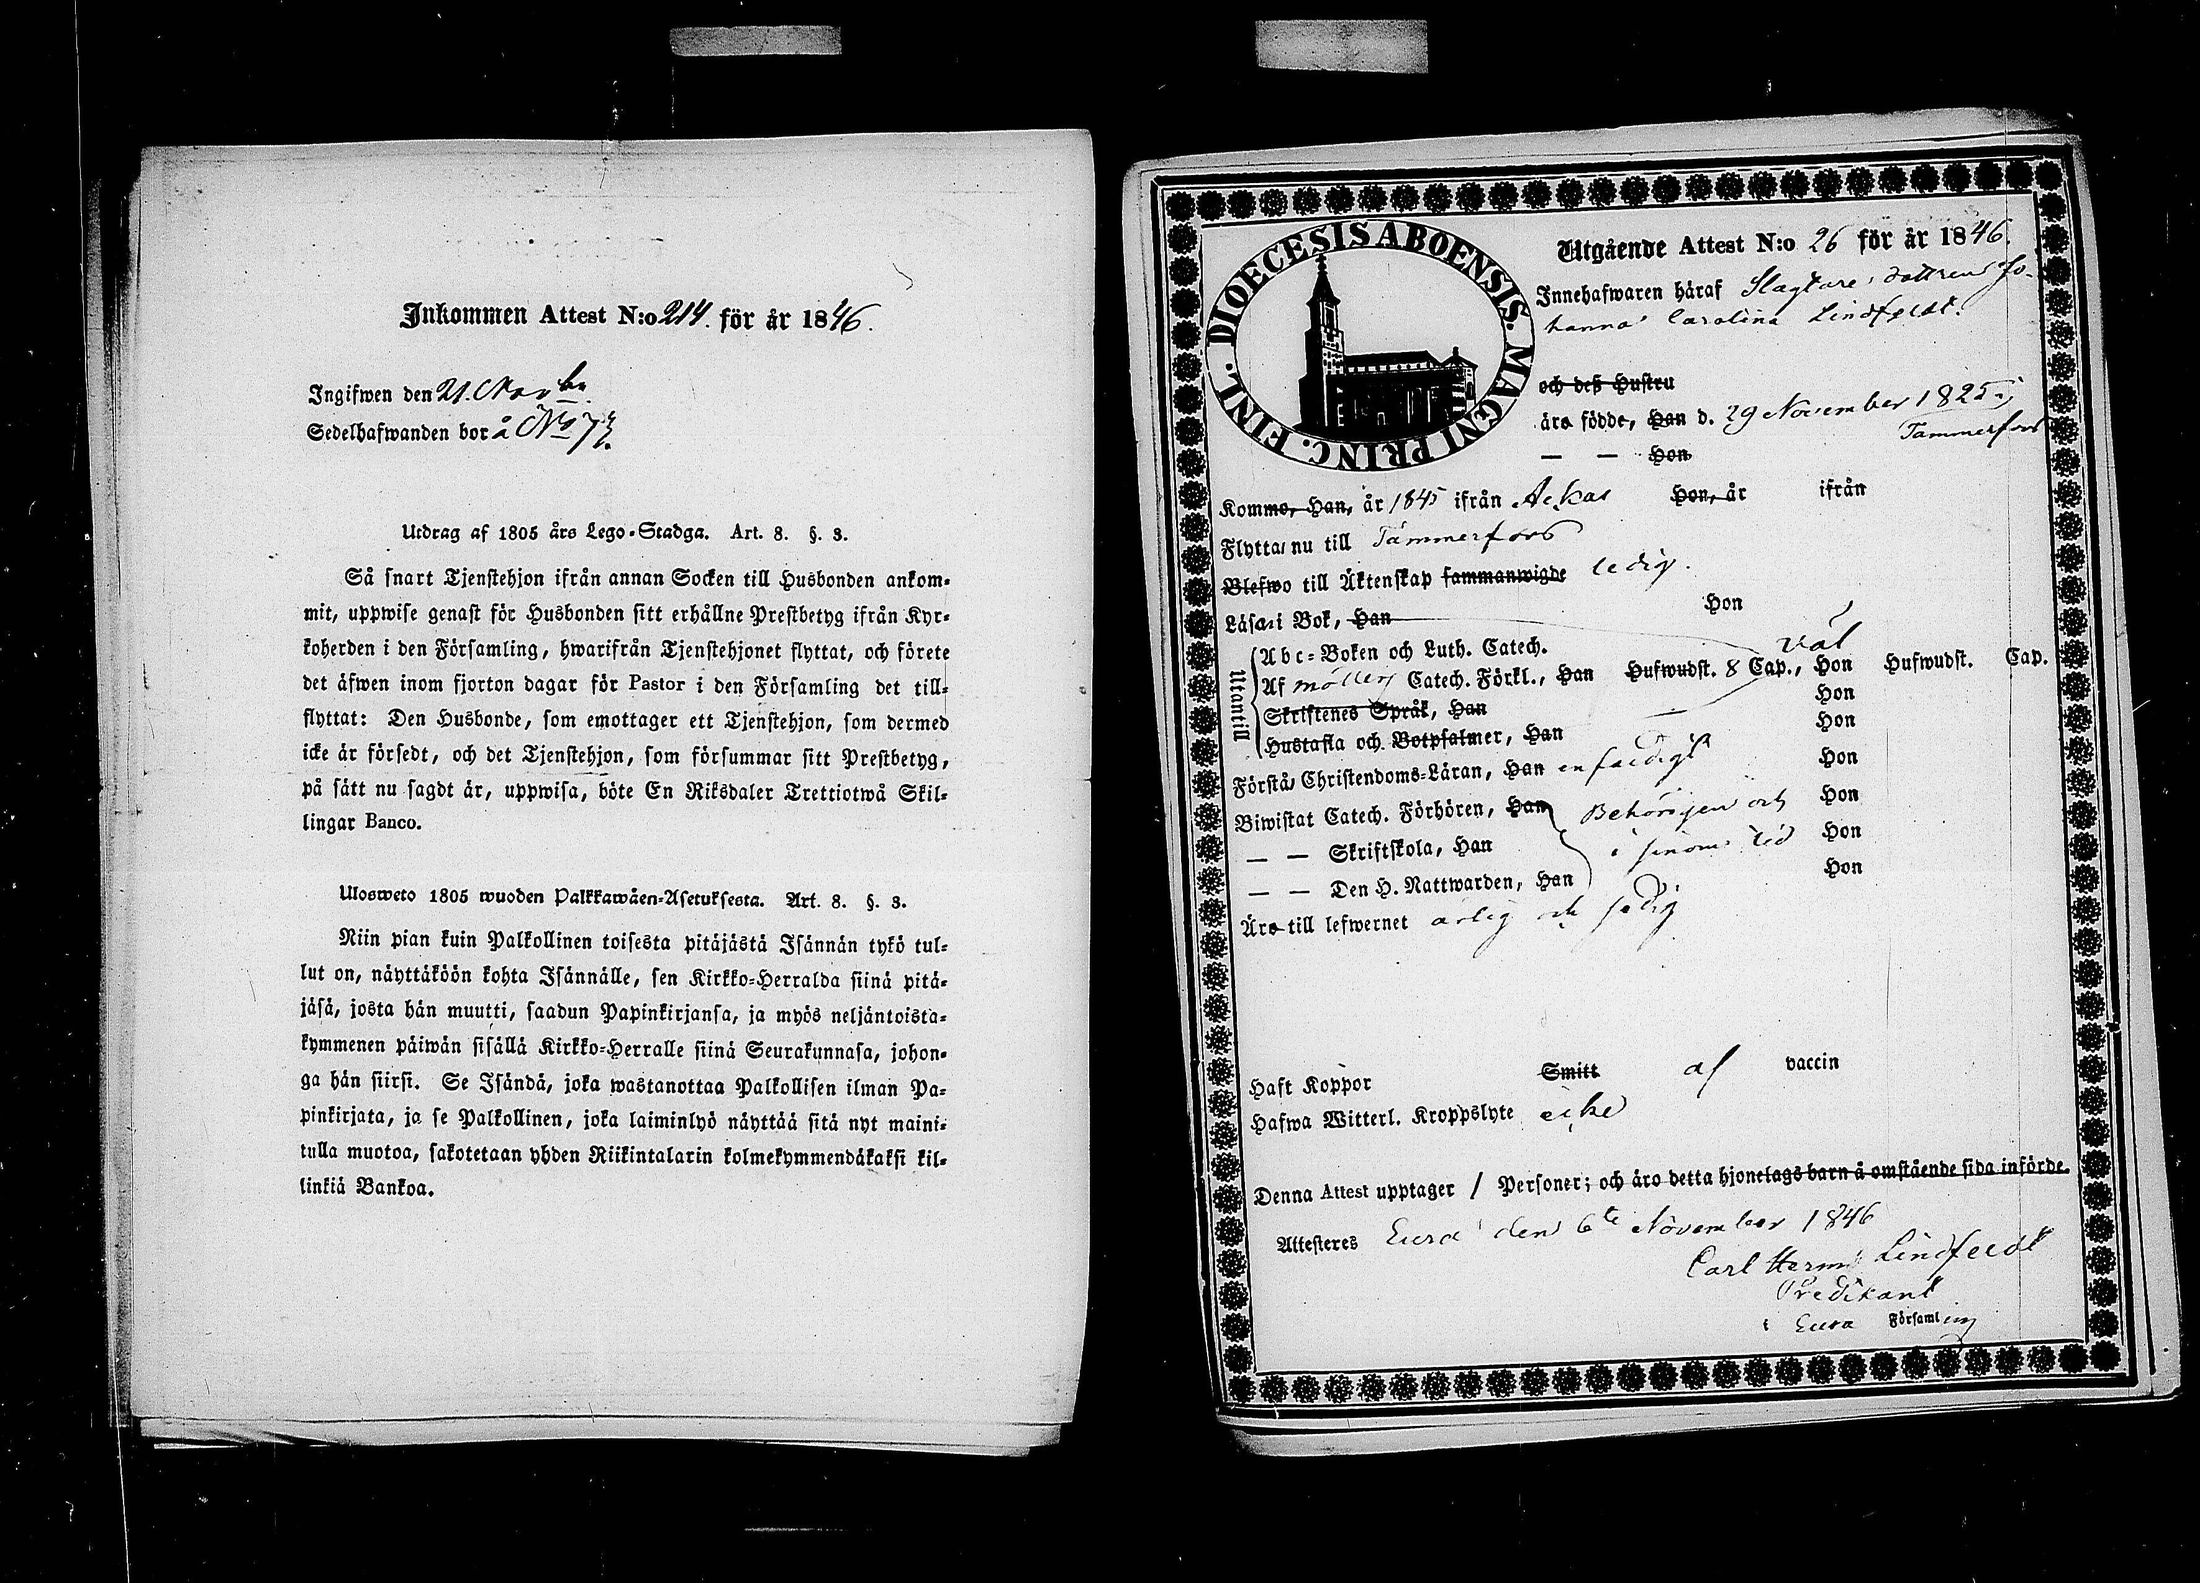 Inkommen Attest N:o 214. för år 1846.
Ingifwen den 21. Novbr.
Sedelhafwanden bor å No 73.
Utdrag af 1805 års Lego-Stadga. Art. 8. §. 3.
Så snart Tjenstehjon ifrån annan Socken till Husbonden ankom-
mit, uppwise genast för Husbonden sitt erhållne Prestbetyg ifrån Kyr-
koherden i den Församling, hwarifrån Tjenstehjonet flyttat, och förete
det äfwen inom fjorton dagar för Pastor i den Församling det till-
flyttat: Den Husbonde, som emottager ett Tjenstehjon, som dermed
icke är försedt, och det Tjenstehjon, som försummar sitt Prestbetyg,
på sätt nu sagdt är, uppwisa, böte En Riksdaler Trettiotwå Skil-
lingar Banco.
Ulosweto 1805 wuoden Palkkawäen-Asetuksesta. Art. 8. §. 3.
Niin pian kuin Palkollinen toisesta pitäjästä Isännän tykö tul-
lut on, näyttäköön kohta Isännälle, sen Kirkko-Herralda siinä pitä-
jäsä, josta hän muutti, saadun Papinkirjansa, ja myös neljäntoista-
kymmenen päiwän sisällä Kirkko-Herralle siinä Seurakunnasa, johon-
ga hän siirsi. Se Isändä, joka wastanottaa Palkollisen ilman Pa-
pinkirjata, ja se Palkollinen, joka laiminlyö näyttää sitä nyt maini-
tulla muotoa, sakotetaan yhden Riikintalarin kolmekymmendäkaksi kil-
linkiä Bankoa.
DIOECESIS ABOENSIS. MAGNI PRINC. FINL.
Utgående Attest N:o 26 för år 1846.
Innehafwaren häraf Slagtare dottren Jo-
hanna Carolina Lindfeldt.
och deß Hustru
äro födde, Han d. 29 November 1825 i
Tammerfors
— — Hon
Komme, Han, år 1845 ifrån Ackas Hon, år ifrån
Flytta nu till Tammerfors
Blefwo till Äktenskap sammanwigde ledig.
Läsa i Bok, Han Hon
Utantill
Abc-Boken och Luth. Catech. väl
Af möllers Catech. Förkl., Han Hufwudst. 8 Cap., Hon Hufwudst. Cap.
Skriftenes Språk, Han Hon
Hustafla och Botpsalmer, Han Hon
Förstå Christendoms-Läran, Han enfaldigt Hon
Biwistat Catech. Förhören, Han Behörigen och Hon
— — Skriftskola, Han i sinom tid Hon
— — Den H. Nattwarden, Han Hon
Äro till lefwernet ärlig och sedig
Haft Koppor Smitt af vaccin
Hafwa Witterl. Kroppslyte icke
Denna Attest upptager 1 Personer; och äro detta hjonelags barn å omstående sida införde.
Attesteres Eura den 6te November 1846
Carl Herm Lindfeldt
Predikant
i Eura Församling